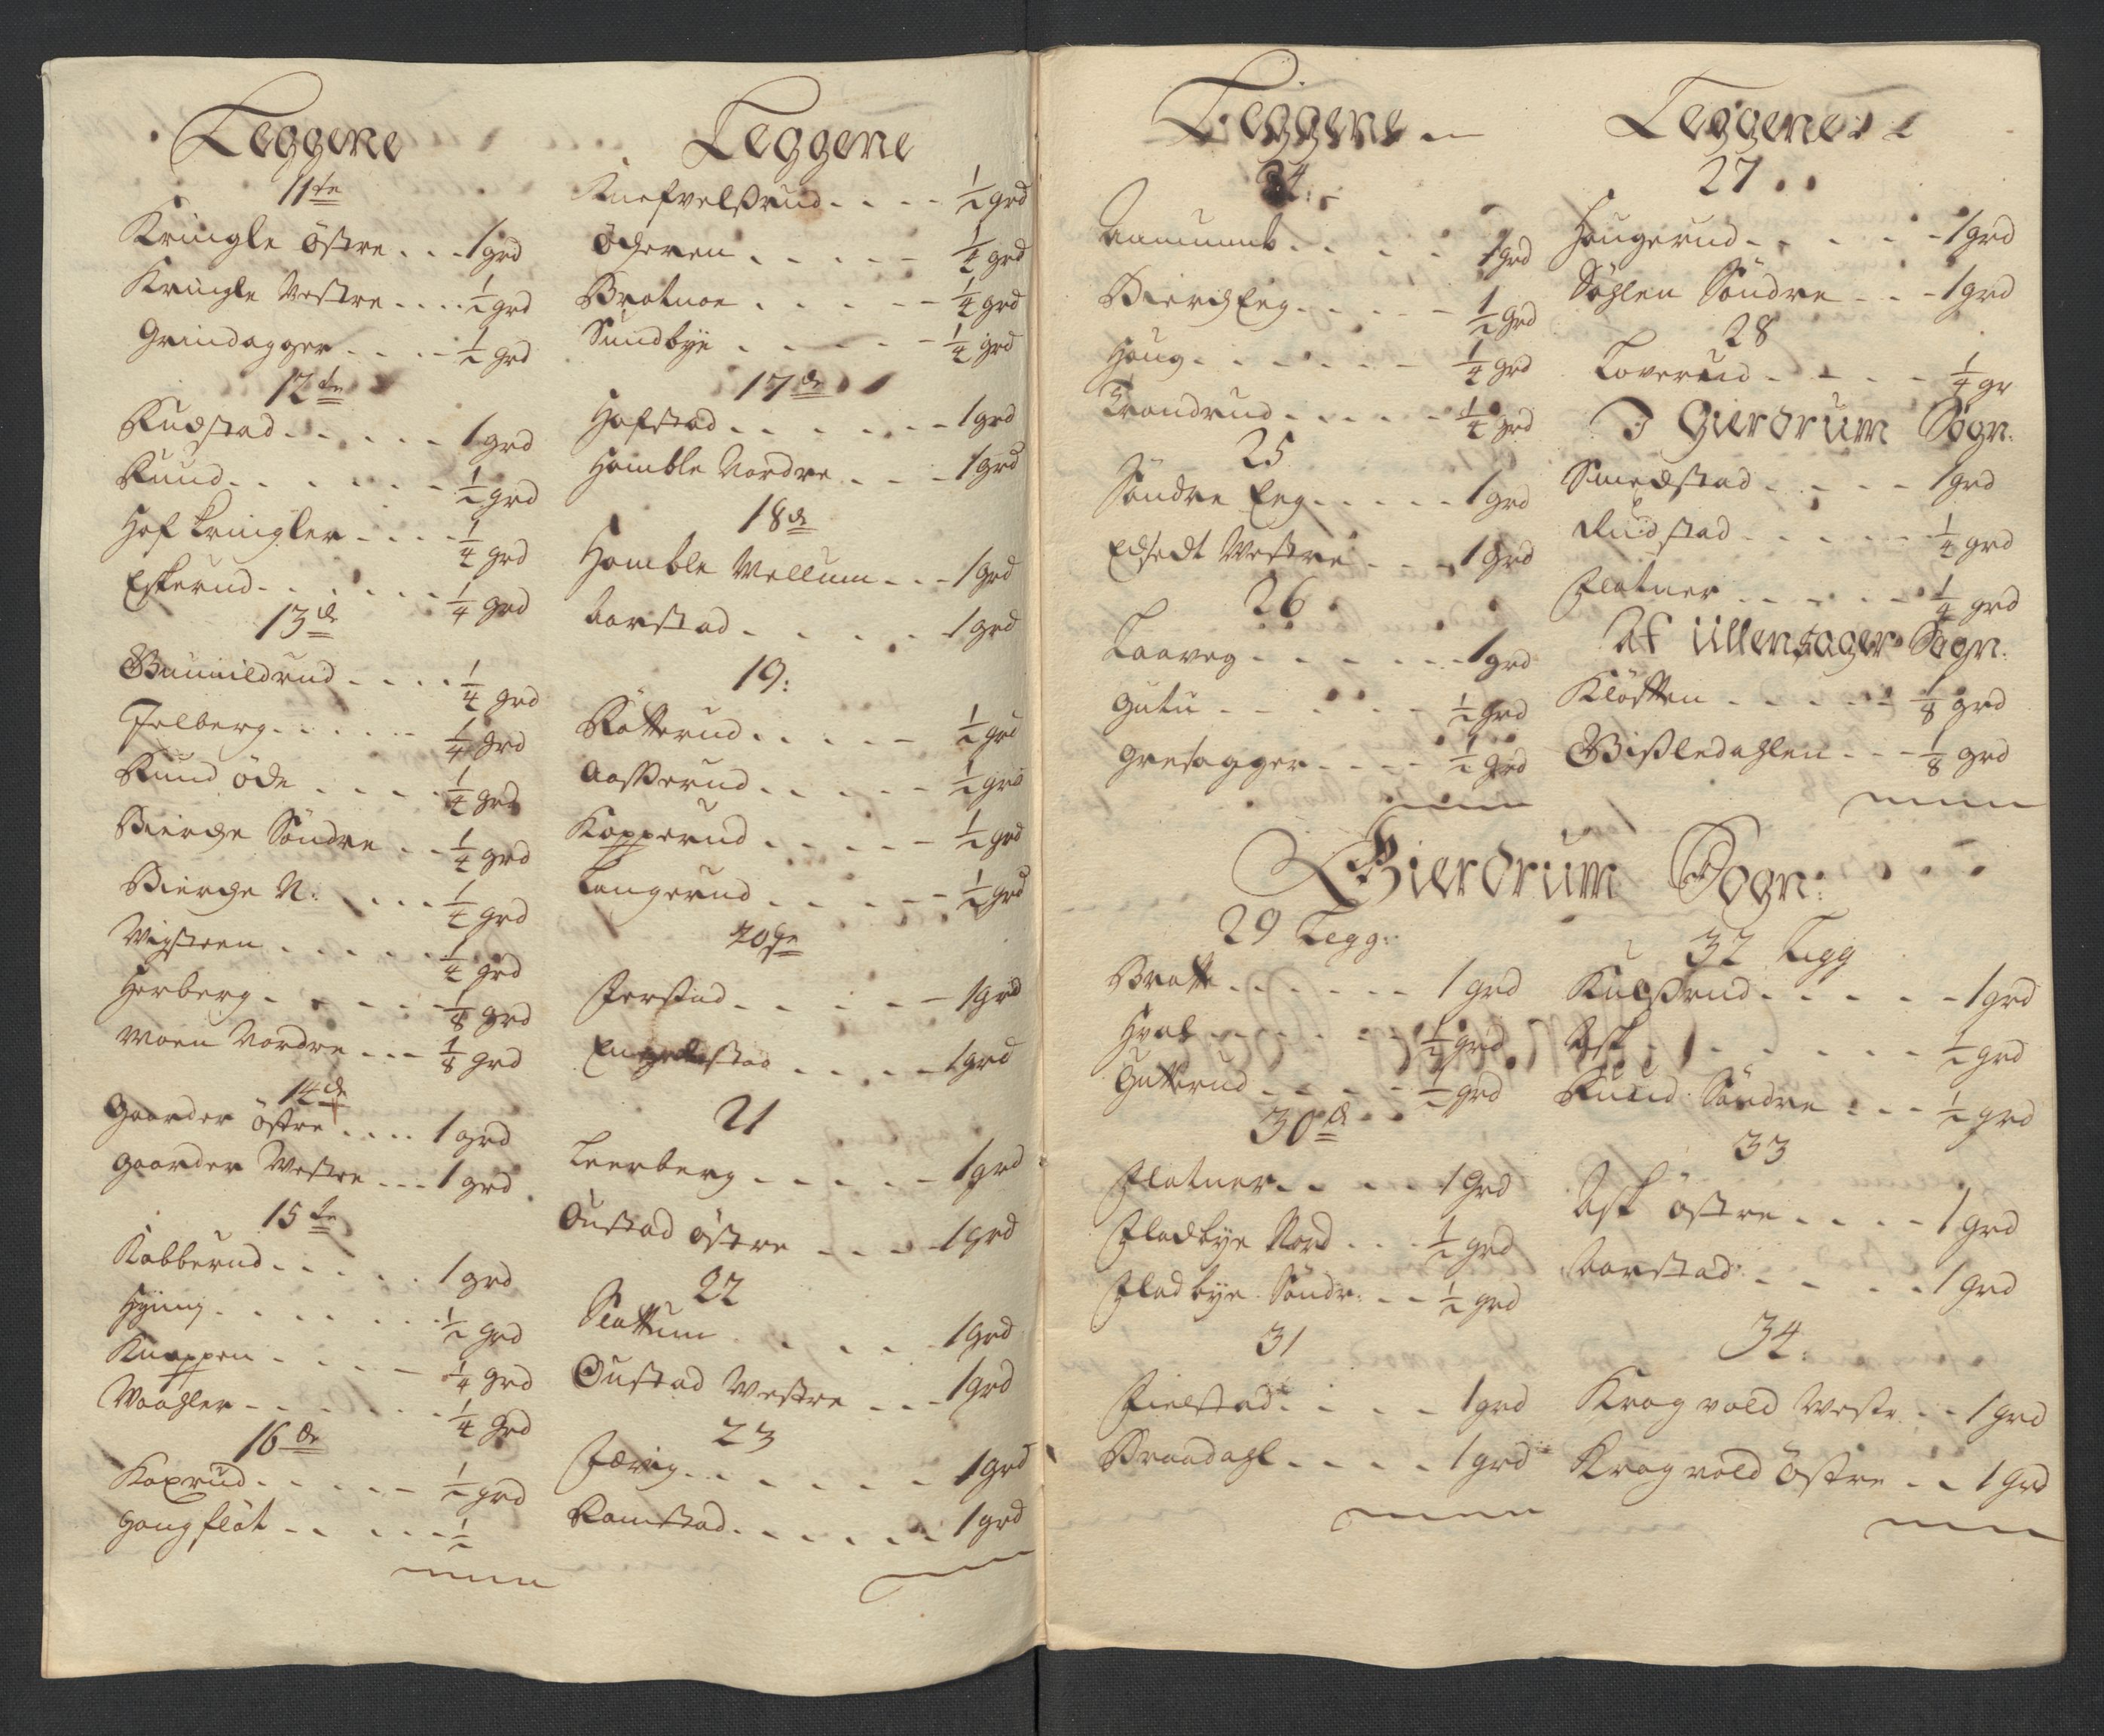 Leggene
11te
Kringle Östre . . . 1 grd
Kringle Vestre . . . . ½ grd
Grindagger . . . . ½ grd
12te
Rudstad . . . . . . 1 grd
Ruud . . . . . . . ½ grd
Hof Kringler . . . . ¼ grd
Eskerud . . . . . . . ¼ grd
13de
Gunnildrud . . . . ¼ grd
Felberg . . . . . . ¼ grd
Ruud öde . . . . ¼ grd
Bierche Söndre . . ¼ grd
Bierche N: . . . . ¼ grd
Vigsteen . . . . . ¼ grd
Herberg . . . . . . ⅛ grd
Moen Nordre . . . ⅛ grd
14de
Gaarder Östre . . . . 1 grd
Gaarder Westre . . . 1 grd
15te
Kabberud . . . . . . 1 grd
Hÿnnj . . . . . . . ½ grd
Knappen . . . . . ¼ grd
Maahler . . . . . . . ¼ grd
16de
Kaxrud . . . . . . ½ grd
Haugflöt . . . . . . ½
Leggene
Knefvelßrud . . . . ½ grd
Öderen . . . . . . ¼ grd
Brotnoe . . . . . . ¼ grd
Sundbÿe . . . . . . ¼ grd
17de
Hofstad . . . . . . . 1 grd
Homble Nordre . . . 1 grd
18de
Homble Mellum . . . 1 grd
Aarstad . . . . . 1 grd
19:
Rötterud . . . . . ½ grd
Aasserud . . . . . ½ grd
Kopperud . . . . . ½ grd
Langerud . . . . . ½ grd
20de
Jerstad . . . . . . 1 grd
Engelstad . . . . . 1 grd
21
Leerberg . . . . . . 1 grd
Oustad östre . . . . 1 grd
22
Slattum . . . . . . 1 grd
Oustad Westre . . . 1 grd
23
Færvig . . . . . . . 1 grd
Ramstad . . . . . . 1 grd
Leggene
24:
. . . . . 1 grd
Bierch Eeg . . . . . ½ grd
Houg . . . . . . . ¼ grd
Trondrud . . . . . ¼ grd
25
Söndre Eeg . . . . . 1 grd
Edsedt Westre . . . 1 grd
26
Laaveg . . . . . . . 1 grd
Gutu . . . . . . ½ grd
Gresagger . . . . ½ grd
Leggene
27
Haugerud . . . . . . 1 grd
Söhlen Söndre . . . 1 grd
28
Loverud . . . . . ¼ gr
I Gierdrum Sogn.
Smedstad . . . . . 1 grd
Rudstad . . . . . . ¼ grd
Flatner . . . . . . ¼ grd
Af Ullensager Sogn.
Klöften . . . . . . ⅛ grd
Gißledahlen . . . ⅛ grd
Gierdrum Sogn:
29 Legg:
Bratte . . . . . . . 1 grd
Hval . . . . . . ½ grd
Gutterud . . . . . ½ grd
30de
Flatner . . . . . 1 grd
Fladbÿe Nord . . . ½ grd
Fladbÿe Söndr: . . ½ grd
31
Fielstad . . . . . 1 grd
Braadahl . . . . . 1 grd
32 Legg
Kulßrud . . . . . . 1 grd
Ask . . . . . . . ½ grd
Ruud Söndre . . . ½ grd
33
Ask östre . . . . . 1 grd
Aarstad . . . . . 1 grd
34:
Krogvold Westr . . 1 grd
Krogvold Östre . . 1 grd